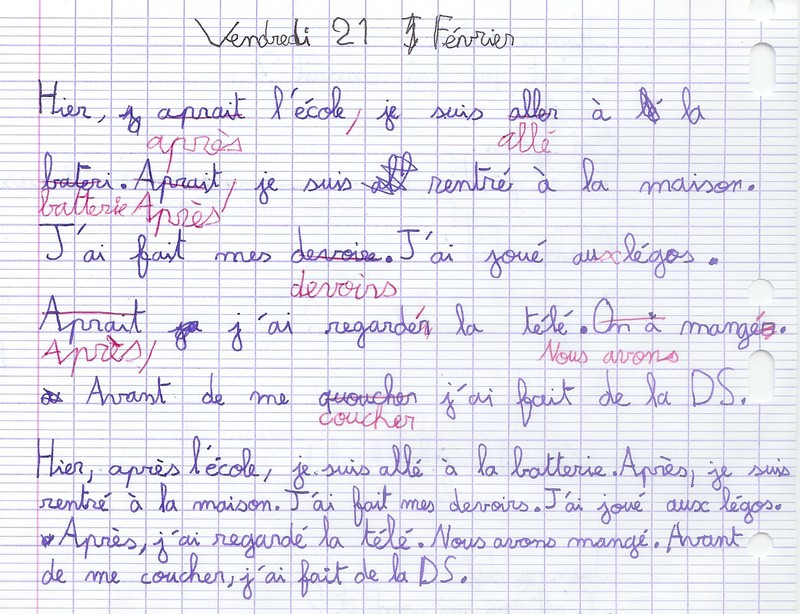 Vendredi 21 Février
Hier, aprait l'école, je suis aller à la
après allé
bateri. Aprait, je suis rentré à la maison.
batterie Après
J'ai fait mes devoire. J'ai joué aux légos.
devoirs
Aprait j'ai regardér la télé. On à mangé.
Après, Nous avons
Avant de me quoucher j'ai fait de la DS.
coucher
Hier, après l'école, je suis allé à la batterie. Après, je suis
rentré à la maison. J'ai fait mes devoirs. J'ai joué aux légos.
Après, j'ai regardé la télé. Nous avons mangé. Avant
de me coucher, j'ai fait de la DS.